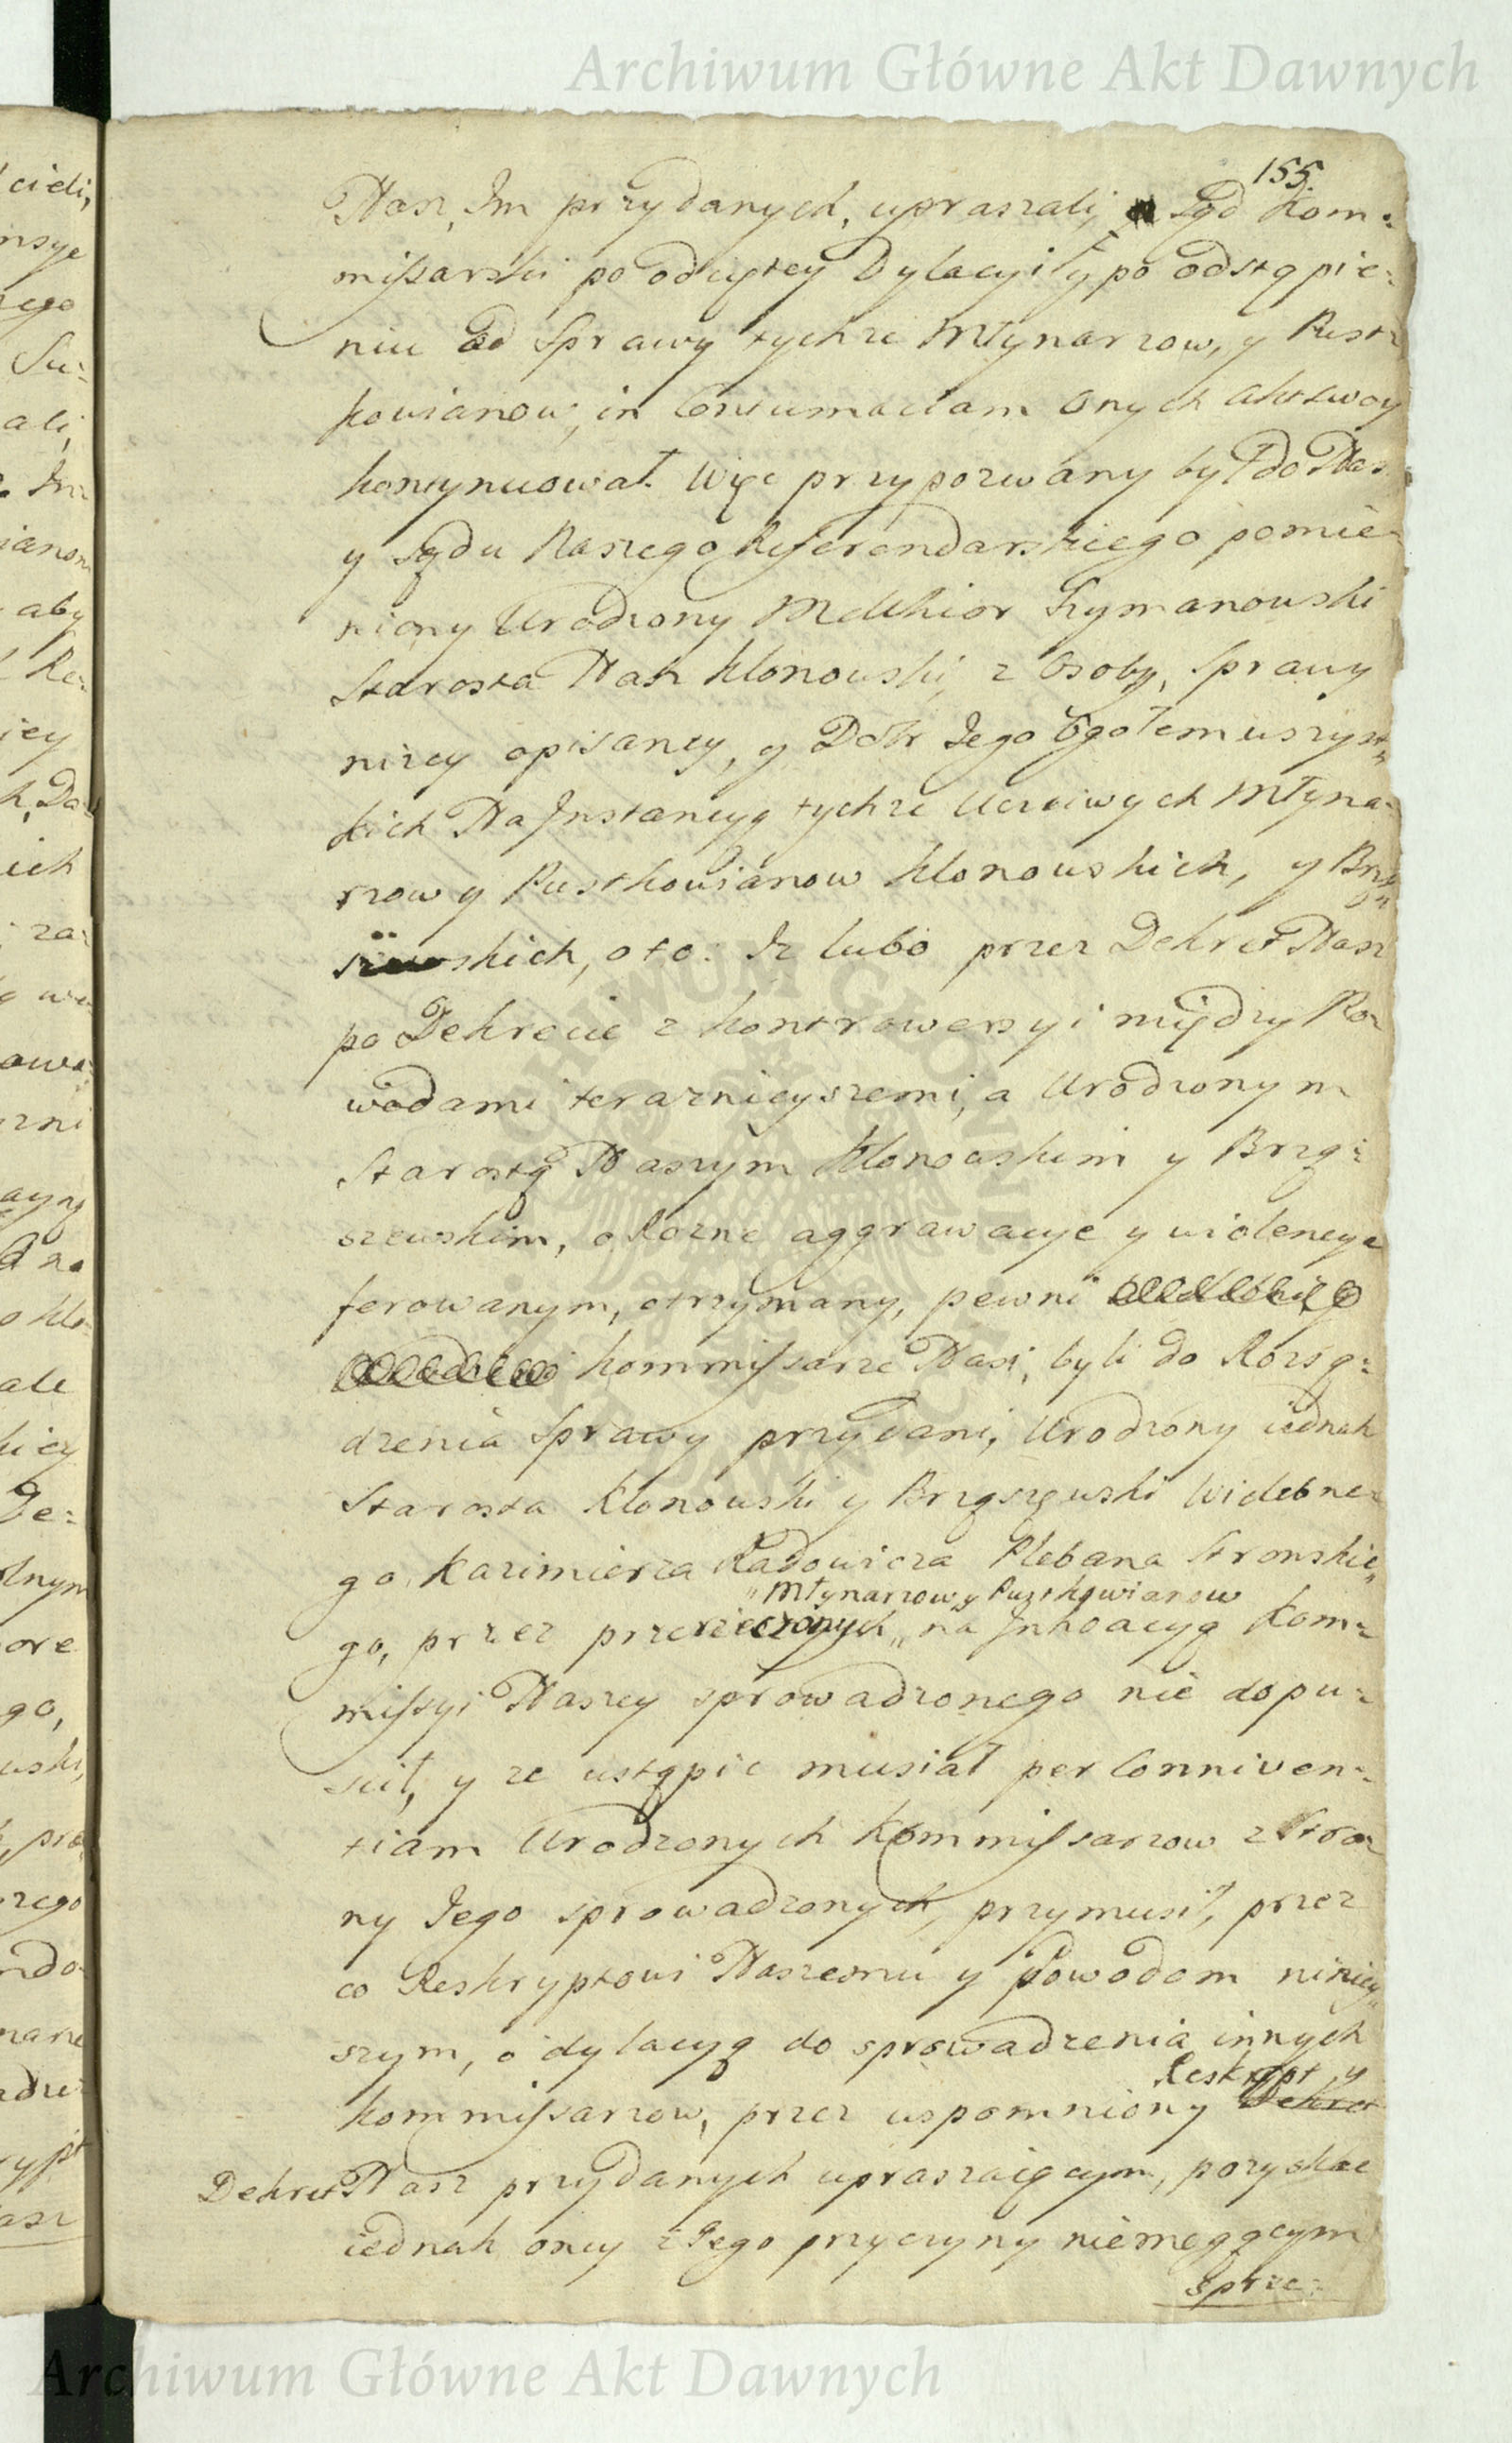 Archiwum Główne Akt Dawnych
155.
Nasz, Im przydanych, upraszali, Sąd Kom=
missarski po odciętey Dylacyi, y po odstąpie=
niu od Sprawy tychże Młynarzow, y Pust=
kowianow, in Contumaciam onych akt swoy
kontynuował. Więc przypozwany był do Nas
y Sądu Naszego Referendarskiego pomie=
niony Urodzony Melchior Szymanowski
Starosta Nasz Klonowski, z Osoby, Sprawy
niżey opisaney, y Dobr Jego Ogołem wszyst=
kich Na Instancyą tychże Uczciwych Młyna=
rzow y Pustkowianow Klonowskich, y Brzą=
skich, oto: Iż lubo przez Dekret Nasz
po Dekrecie z kontrowersyi między Po=
wodami teraznieyszemi, a Urodzonym
Starostą Naszym Klonowskim y Brzą=
szewskim, o Rożne aggrawacye y violencye
ferowanym, otrzymany, pewni
kommissarze Nasi, byli do Rozsą=
dzenia Sprawy przydani, Urodzony iednak
Starosta Klonowski y Brząszewski Wielebne=
go Kazimierza Radowicza Plebana Stronskie=
Młynarzow y Pustkowianow
go, przez przerzeczonych na Inhoacyą Kom=
missyi Naszey sprowadzonego nie dopu=
scił, y że ustąpic musiał per Conniven=
tiam Urodzonych Kommissarzow z Stro=
ny Jego sprowadzonych, przymusił, przez
co Reskryptowi Naszemu y Powodom niniey=
szym, o dylacyą do sprowadzenia innych
Reskrypt y
kommissarzow, przez wspomniony Dekret
Dekret Nasz przydanych upraszaiącym, pozyskac
iednak oney z Jego przyczyny niemogącym
sprze=
Archiwum Główne Akt Dawnych